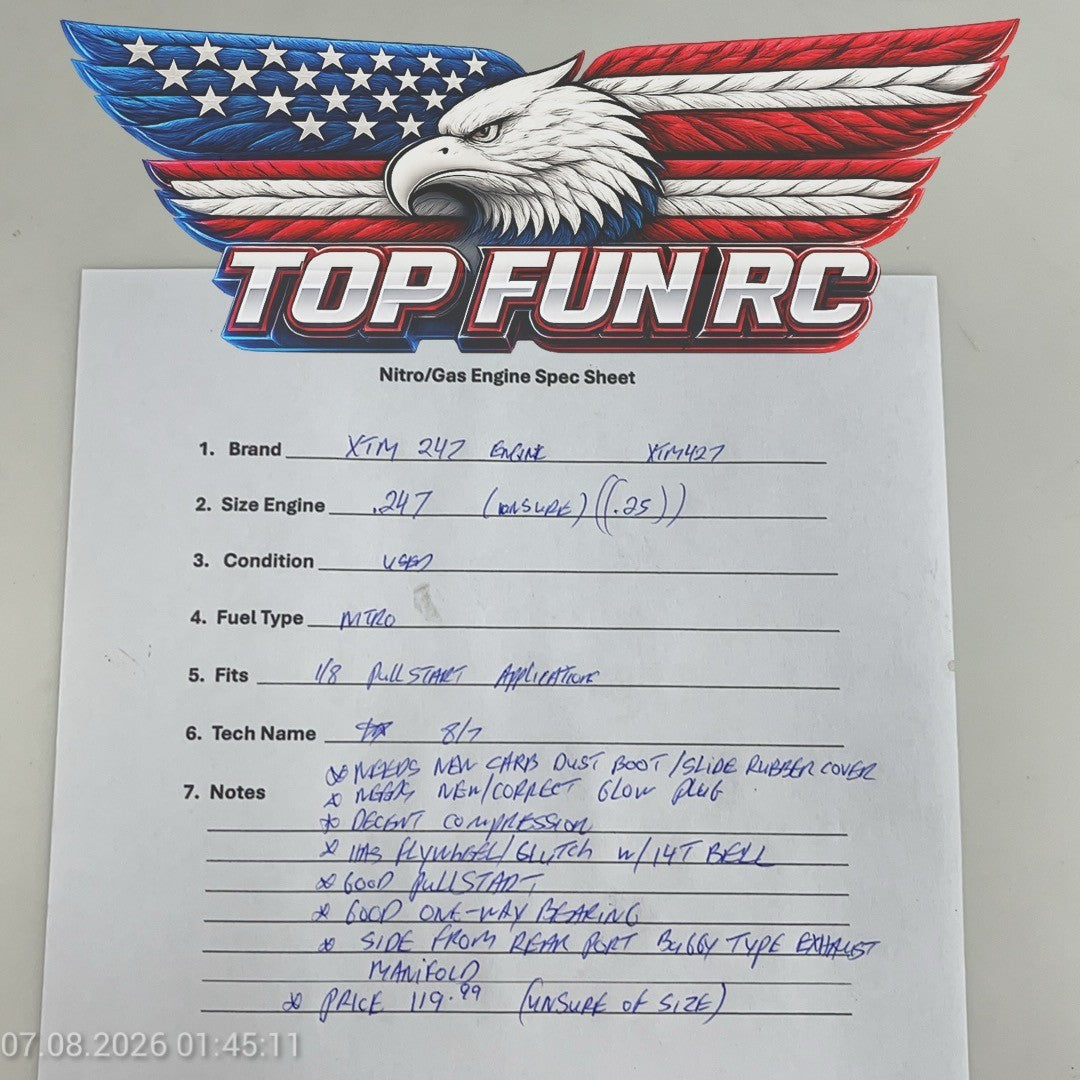 TOP FUN RC
Nitro/Gas Engine Spec Sheet
1. Brand XTM 247 ENGINE XTM427
2. Size Engine .247 (UNSURE) ((.25))
3. Condition USED
4. Fuel Type NITRO
5. Fits 1/8 PULLSTART APPLICATIONS
6. Tech Name 8/7
* NEEDS NEW CARB DUST BOOT/SLIDE RUBBER COVER
7. Notes * NEEDS NEW/CORRECT GLOW PLUG
* DECENT COMPRESSION
* HAS FLYWHEEL/CLUTCH W/14T BELL
* GOOD PULLSTART
* GOOD ONE-WAY BEARING
* SIDE FROM REAR PORT BUGGY TYPE EXHAUST
MANIFOLD
* PRICE 119.99 (UNSURE OF SIZE)
07.08.2026 01:45:11